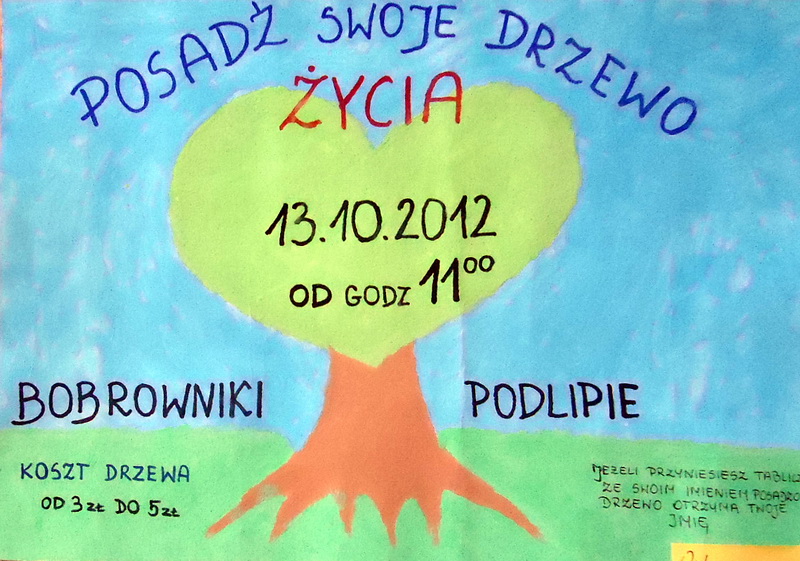 POSADŹ SWOJE DRZEWO
ŻYCIA
13.10.2012
OD GODZ 11⁰⁰
BOBROWNIKI PODLIPIE
KOSZT DRZEWA
OD 3 zł DO 5 zł
JEŻELI PRZYNIESIESZ TABLICZ
ZE SWOIM IMIENIEM POSADZO
DRZEWO OTRZYMA TWOJE
IMIĘ